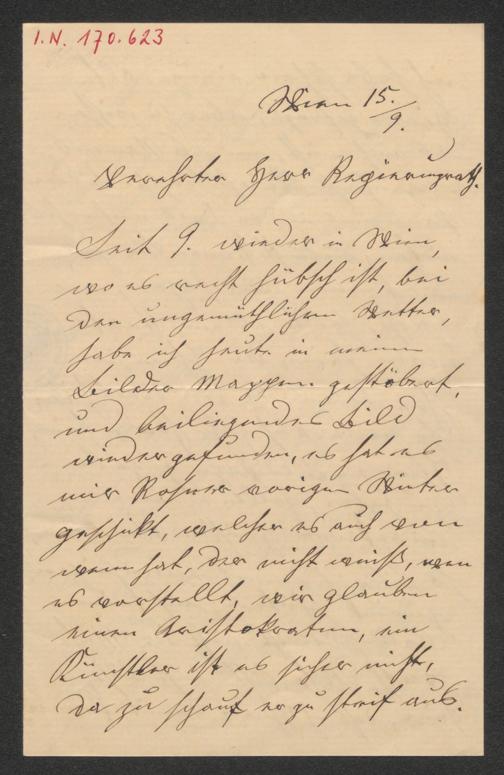 I.N. 170.623
Wien 15./9.
Verehrter Herr Regierungrath.
Seit 9. wieder in Wien,
wo es recht hübsch ist, bei
den ungemüthlichen Wetter,
habe ich heute in meinen
Bilder Mappen gestöbert,
und beiliegendes Bild
wieder gefunden, es hat es
mir Rosner vorigen Winter
geschikt, welcher es auch von
wem hat, der nicht weiß, wen
es vorstellt, wir glauben
einen Aristokraten, ein
Künstler ist es sicher nicht,
da zu schauf er zu steif aus.